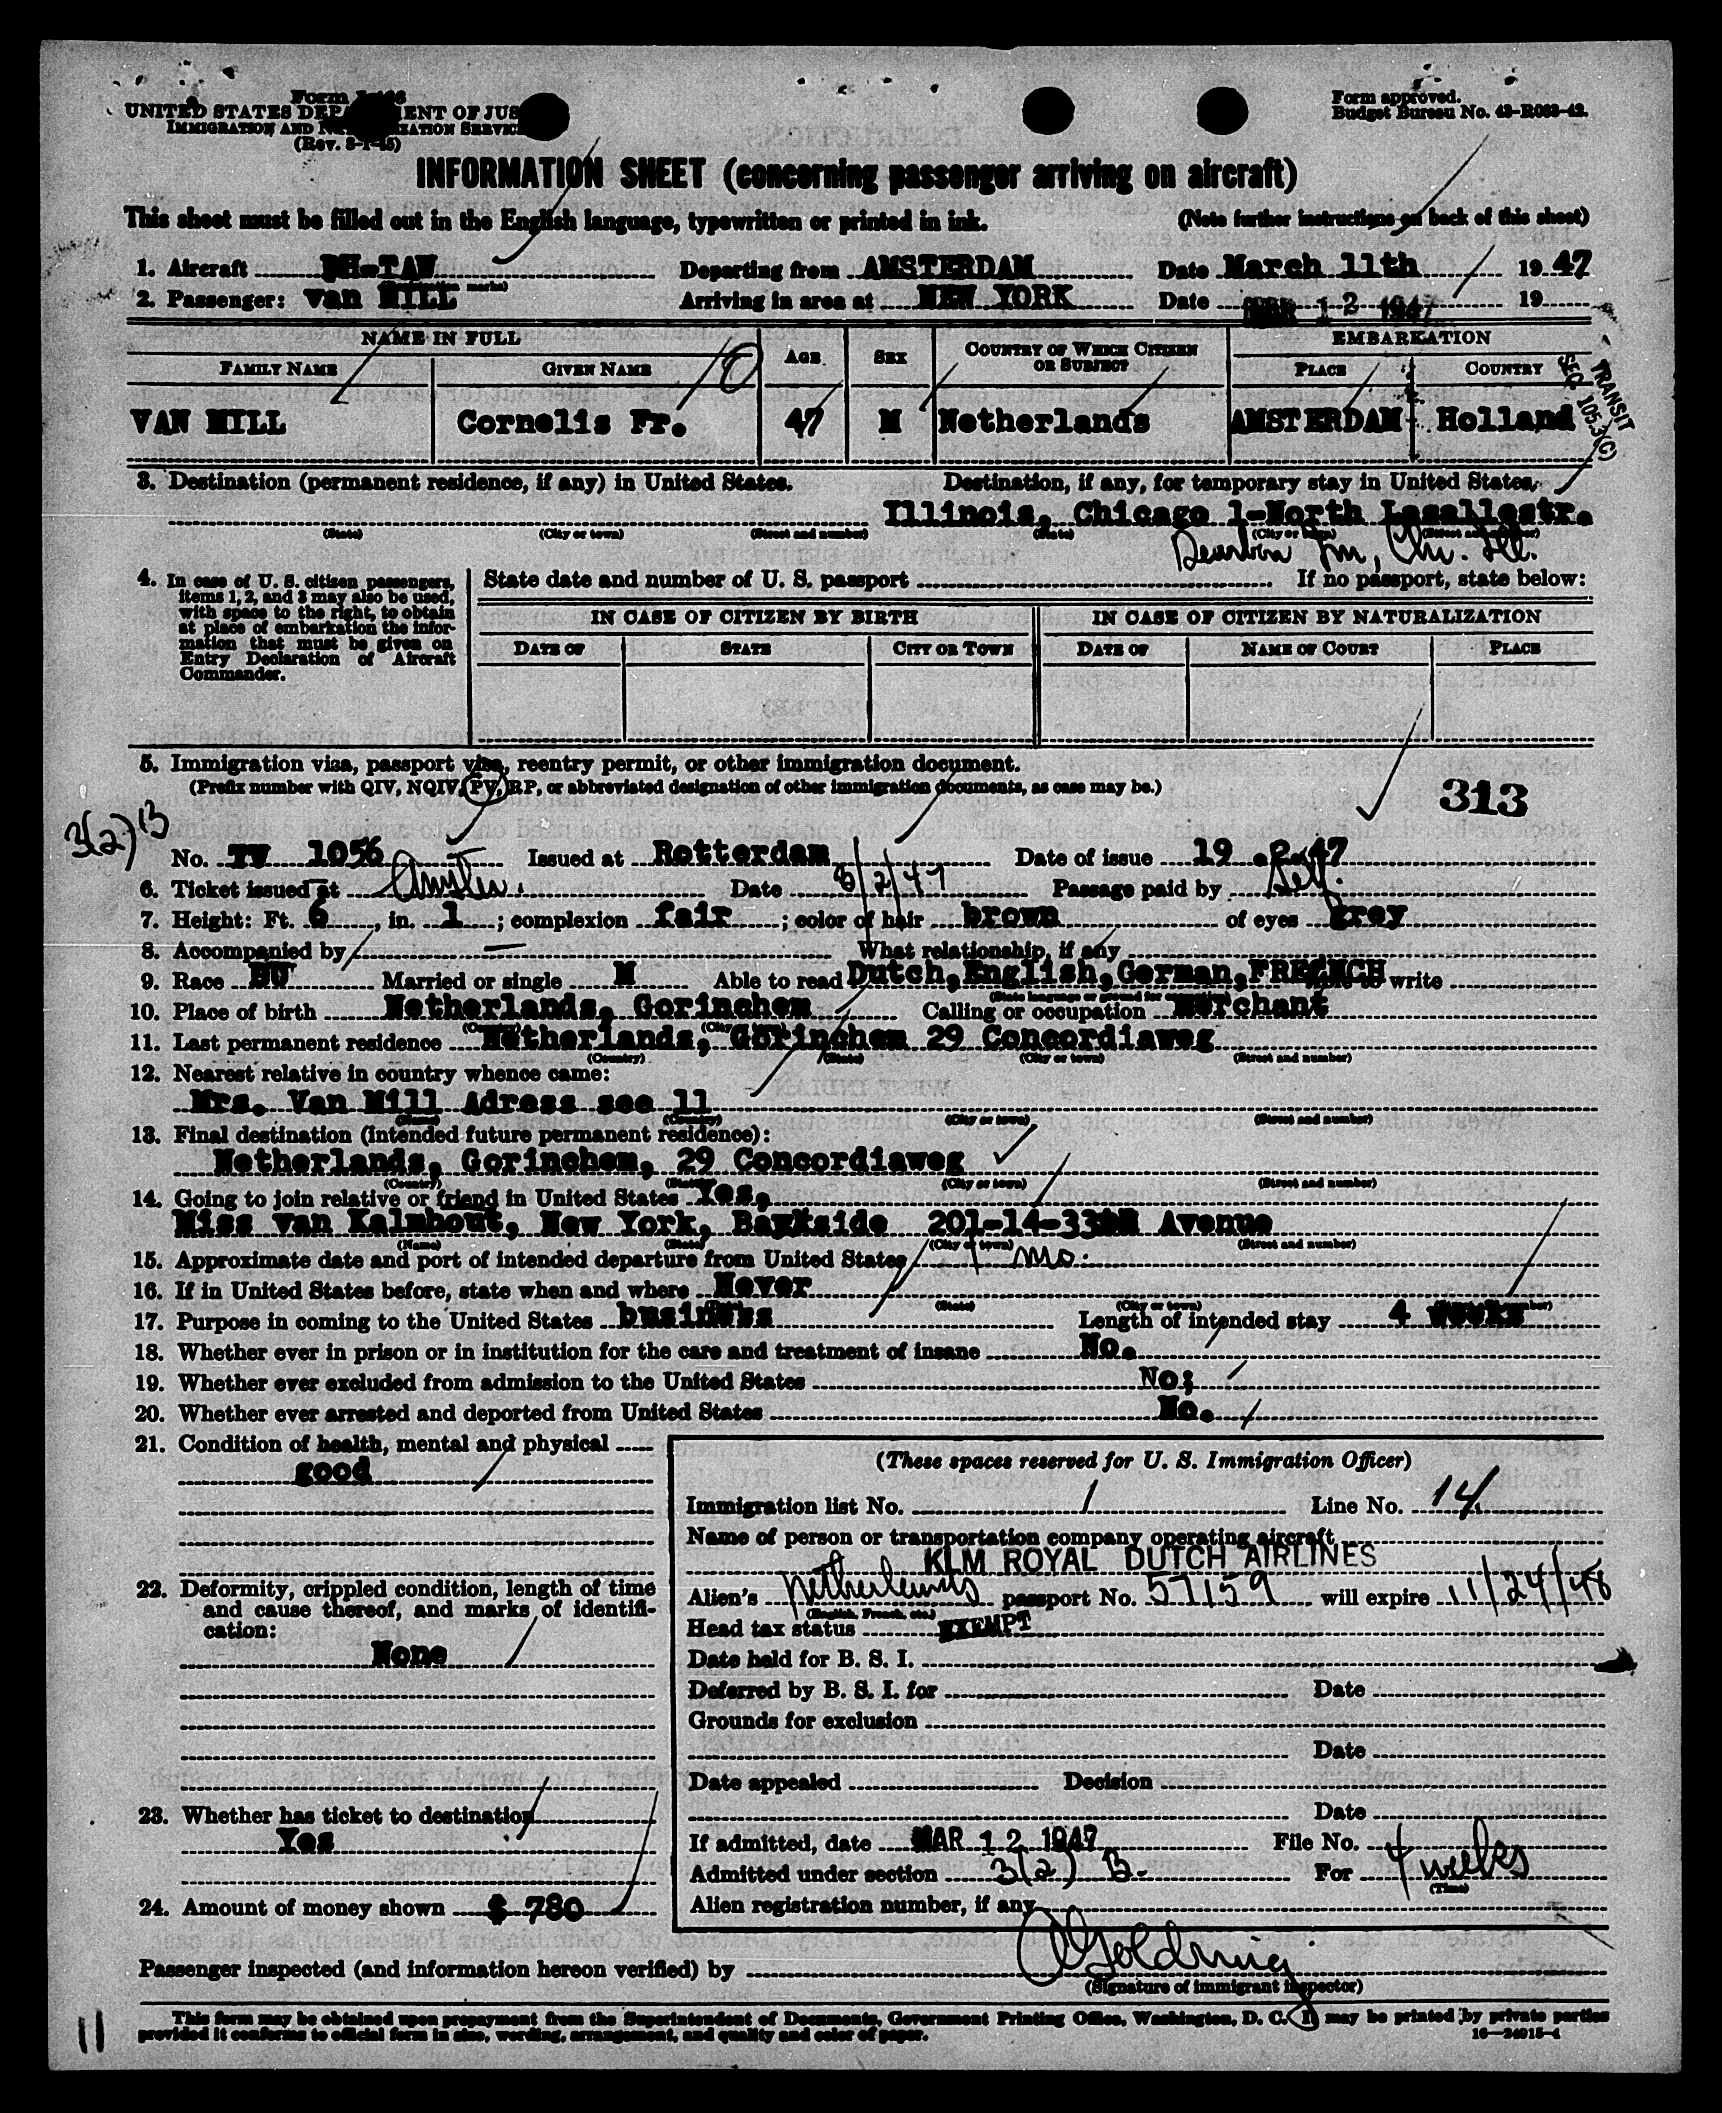 Form
UNITED STATES DEPARTMENT OF JUS
IMMIGRATION AND NATURALIZATION SERVICE
(Rev. 3-1-45)
Form approved.
Budget Bureau No. 43-R083-42.
INFORMATION SHEET (concerning passenger arriving on aircraft)
This sheet must be filled out in the English language, typewritten or printed in ink. (Note further instructions on back of this sheet)
1. Aircraft PH-TAW Departing from AMSTERDAM Date March 11th 1947
2. Passenger: van MILL Arriving in area at NEW YORK Date MAR 12 1947 19
NAME IN FULL AGE SEX COUNTRY OF WHICH CITIZEN OR SUBJECT EMBARKATION
FAMILY NAME GIVEN NAME PLACE COUNTRY
TRANSIT
SEC. 105.3(c)
VAN MILL Cornelis Fr. 47 M Netherlands AMSTERDAM Holland
3. Destination (permanent residence, if any) in United States. Destination, if any, for temporary stay in United States.
Illinois, Chicago 1-North Lasallestr.
(State) (City or town) (Street and number) (State) (City or town) (Street and number)
Chi. Ill.
4. In case of U. S. citizen passengers, items 1, 2, and 3 may also be used, with space to the right, to obtain at place of embarkation the information that must be given on Entry Declaration of Aircraft Commander.
State date and number of U. S. passport If no passport, state below:
IN CASE OF CITIZEN BY BIRTH IN CASE OF CITIZEN BY NATURALIZATION
DATE OF STATE CITY OR TOWN DATE OF NAME OF COURT PLACE
5. Immigration visa, passport visa, reentry permit, or other immigration document.
(Prefix number with QIV, NQIV, PV, RP, or abbreviated designation of other immigration documents, as case may be.)
313
3(2) B
No. TV 1056 Issued at Rotterdam Date of issue 19 .2.47
6. Ticket issued at Date 3/2/47 Passage paid by Self.
7. Height: Ft. 6, in. 1; complexion fair; color of hair brown of eyes grey
8. Accompanied by — What relationship, if any
9. Race DU Married or single M Able to read Dutch,English,German,FRENCH write
10. Place of birth Netherlands, Gorinchem Calling or occupation merchant
11. Last permanent residence Netherlands, Gorinchem 29 Concordiaweg
(Country) (State) (City or town) (Street and number)
12. Nearest relative in country whence came:
Mrs. Van Mill Adress see 11
(Name) (Country) (City or town) (Street and number)
13. Final destination (intended future permanent residence):
Netherlands, Gorinchem, 29 Concordiaweg
(Country) (State) (City or town) (Street and number)
14. Going to join relative or friend in United States Yes,
Miss van Kalmhout, New York, Bayside 201-14-33 Avenue
(Name) (State) (City or town) (Street and number)
15. Approximate date and port of intended departure from United States 1 mo.
16. If in United States before, state when and where Never
(State) (City or town) (Street and number)
17. Purpose in coming to the United States business Length of intended stay 4 weeks
18. Whether ever in prison or in institution for the care and treatment of insane No.
19. Whether ever excluded from admission to the United States No;
20. Whether ever arrested and deported from United States No.
21. Condition of health, mental and physical
good
22. Deformity, crippled condition, length of time and cause thereof, and marks of identification:
None
23. Whether has ticket to destination
Yes
24. Amount of money shown $ 780
(These spaces reserved for U. S. Immigration Officer)
Immigration list No. 1 Line No. 14
Name of person or transportation company operating aircraft
KLM ROYAL DUTCH AIRLINES
Alien's Netherlands passport No. 57159 will expire 11/24/48
(English, French, etc.)
Head tax status EXEMPT
Date held for B. S. I.
Deferred by B. S. I. for Date
Grounds for exclusion
Date
Date appealed Decision
Date
If admitted, date MAR 12 1947 File No.
Admitted under section 3(2) B. For 4 weeks
(Time)
Alien registration number, if any
Passenger inspected (and information hereon verified) by
(Signature of immigrant inspector)
This form may be obtained upon prepayment from the Superintendent of Documents, Government Printing Office, Washington, D. C. It may be printed by private parties
provided it conforms to official form in size, wording, arrangement, and quality and color of paper. 16—24915-4
11